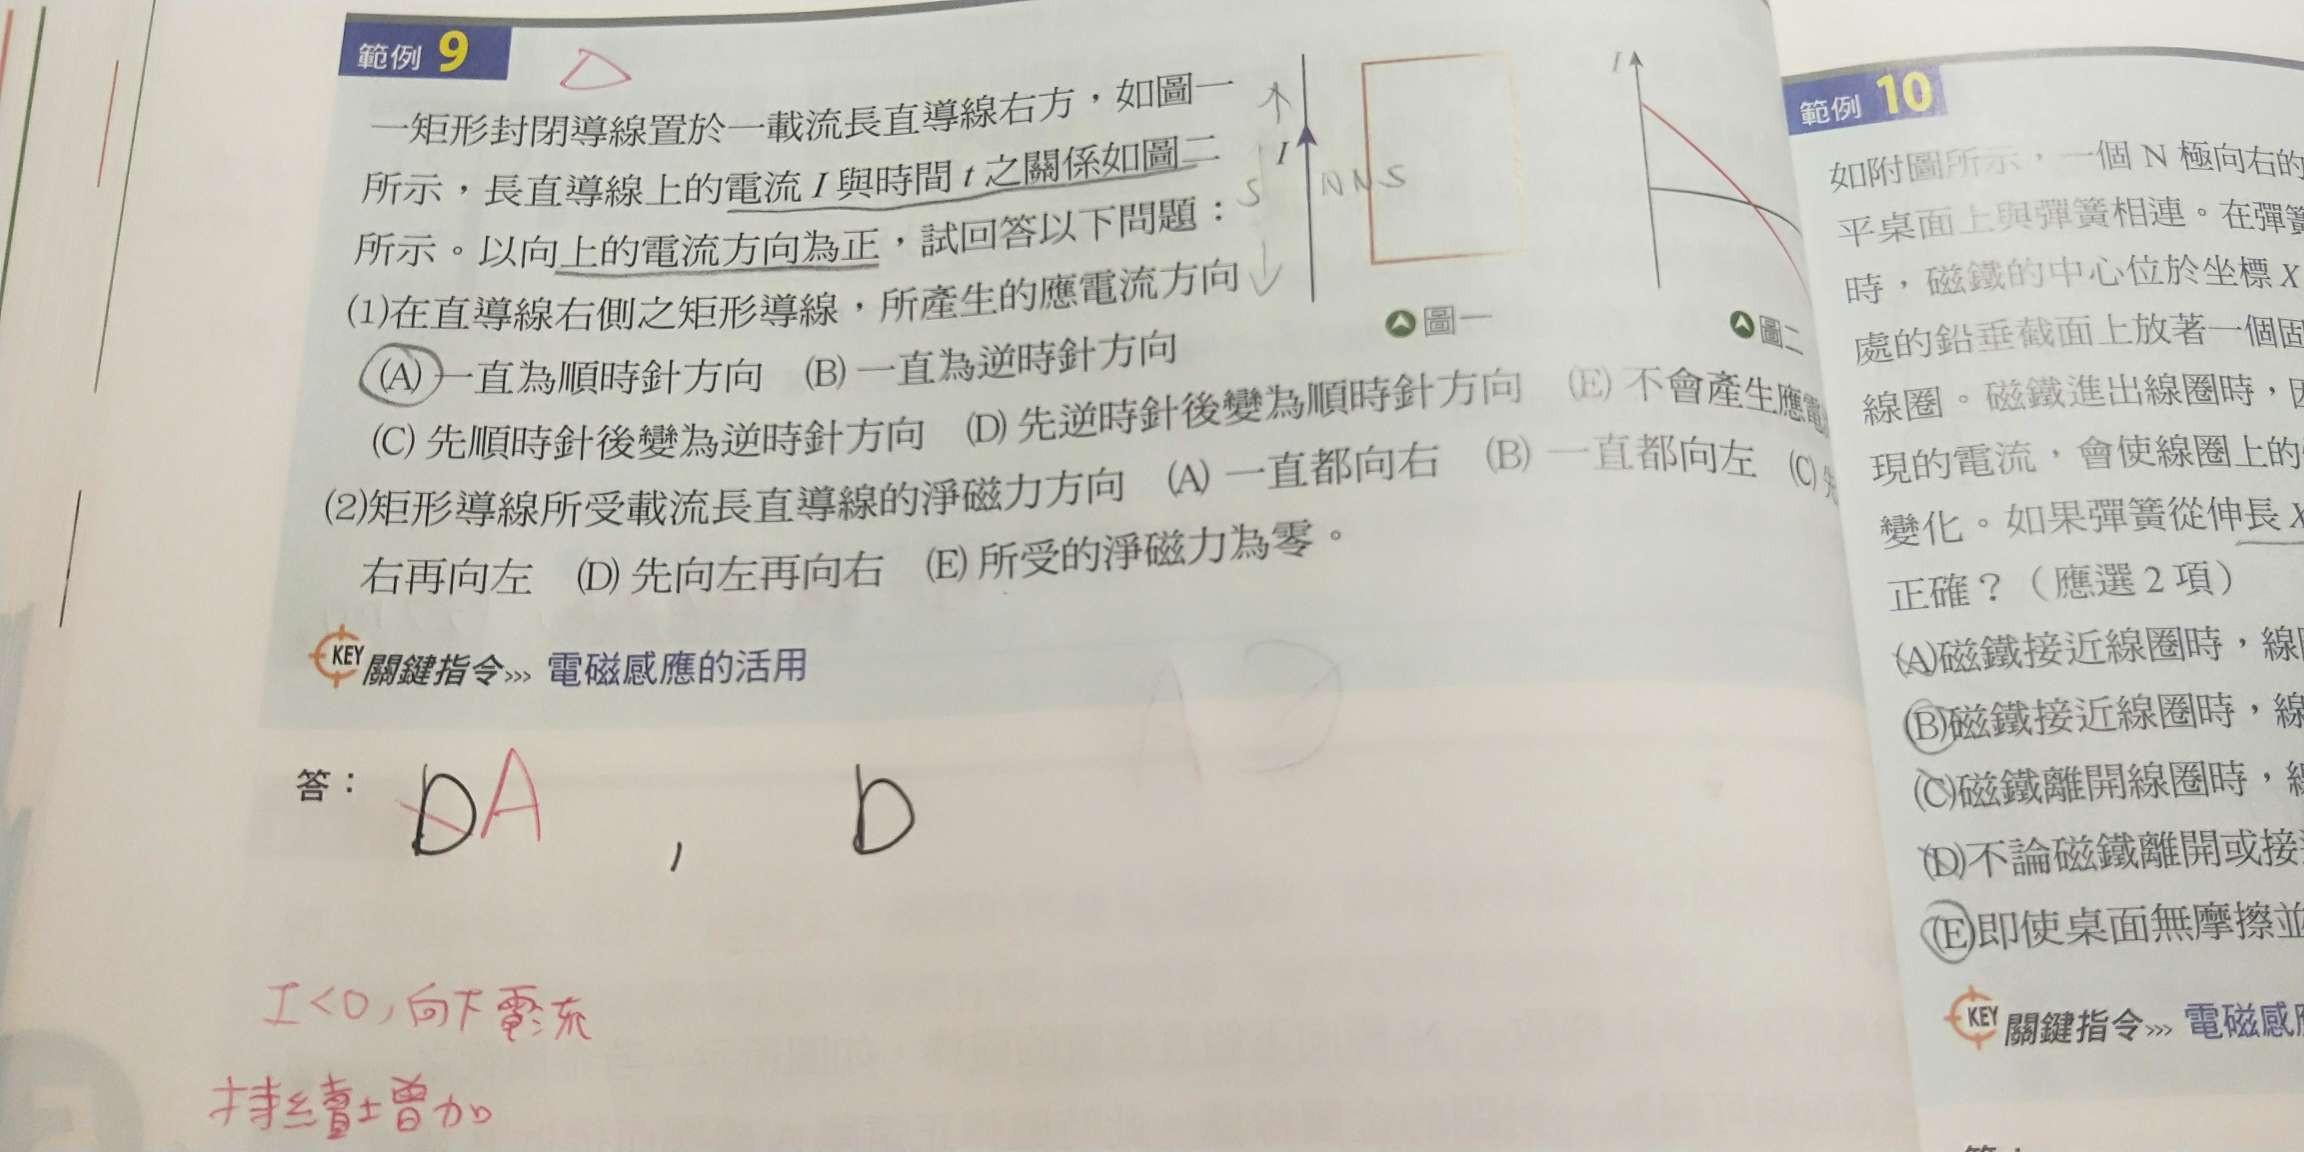 範例 9
一矩形封閉導線置於一載流長直導線右方，如圖一
所示，長直導線上的電流 I 與時間 t 之關係如圖二
所示。以向上的電流方向為正，試回答以下問題：
(1)在直導線右側之矩形導線，所產生的應電流方向
(A) 一直為順時針方向 (B) 一直為逆時針方向
(C) 先順時針後變為逆時針方向 (D) 先逆時針後變為順時針方向 (E) 不會產生應電
(2)矩形導線所受載流長直導線的淨磁力方向 (A) 一直都向右 (B) 一直都向左 (C) 先
右再向左 (D) 先向左再向右 (E) 所受的淨磁力為零。
I
S
N N S
圖一
I
圖二
KEY 關鍵指令››› 電磁感應的活用
答：
D A , D
I<0,向下電流
持續增加
範例 10
如附圖所示，一個 N 極向右的
平桌面上與彈簧相連。在彈簧
時，磁鐵的中心位於坐標 X
處的鉛垂截面上放著一個固
線圈。磁鐵進出線圈時，因
現的電流，會使線圈上的
變化。如果彈簧從伸長 X
正確？（應選 2 項）
(A)磁鐵接近線圈時，線
(B)磁鐵接近線圈時，線
(C)磁鐵離開線圈時，線
(D)不論磁鐵離開或接
(E)即使桌面無摩擦並
KEY 關鍵指令››› 電磁感應